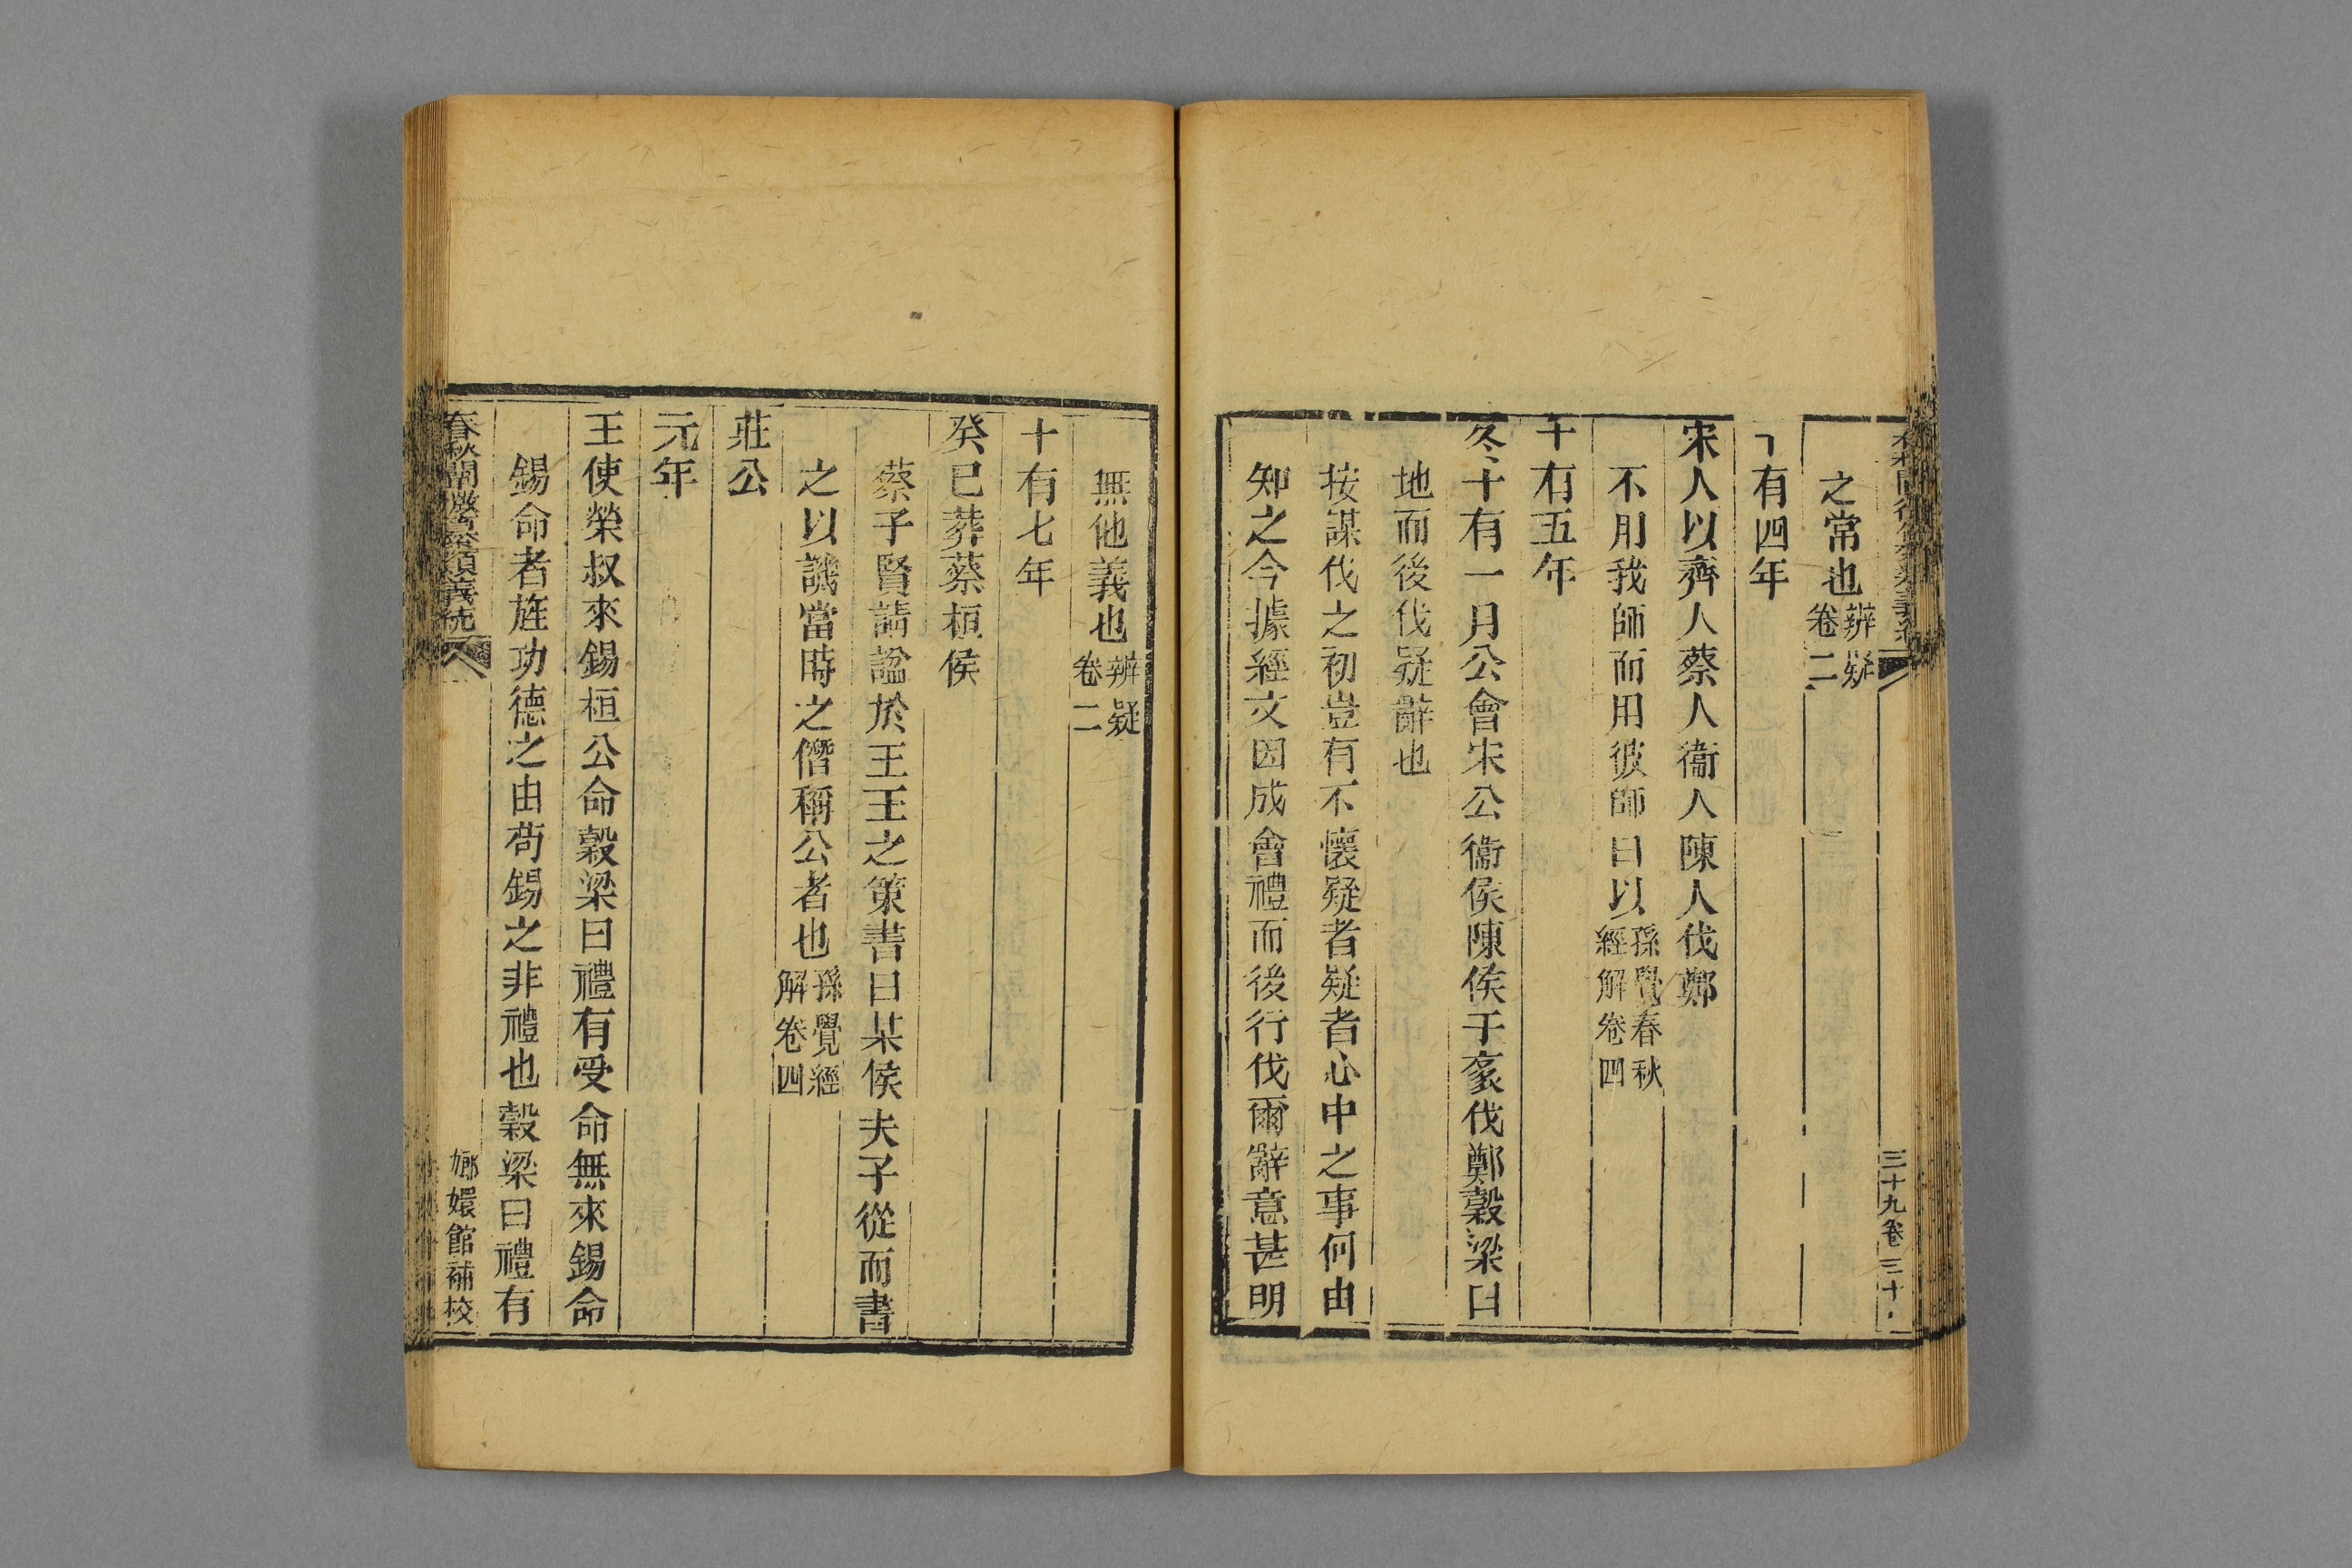 之常也辨疑卷二
有四年
宋人以齊人蔡人衞人陳人伐鄭
不用我師而用彼師曰以孫覺春秋經解卷四
十有五年
冬十有一月公會宋公衞侯陳侯于袲伐鄭穀梁曰
地而後伐疑辭也
按謀伐之初豈有不懷疑者疑者心中之事何由
知之今據經文因成會禮而後行伐爾辭意甚明
三十九卷三十
無他義也辨疑卷二
十有七年
癸巳葬蔡桓侯
蔡子賢請諡於王王之策書曰某侯夫子從而書
之以譏當時之僭稱公者也孫覺經解卷四
莊公
元年
王使榮叔來錫桓公命穀梁曰禮有受命無來錫命
錫命者旌功德之由苟錫之非禮也穀梁曰禮有
春秋闡微纂類義統
嫏嬛館補校